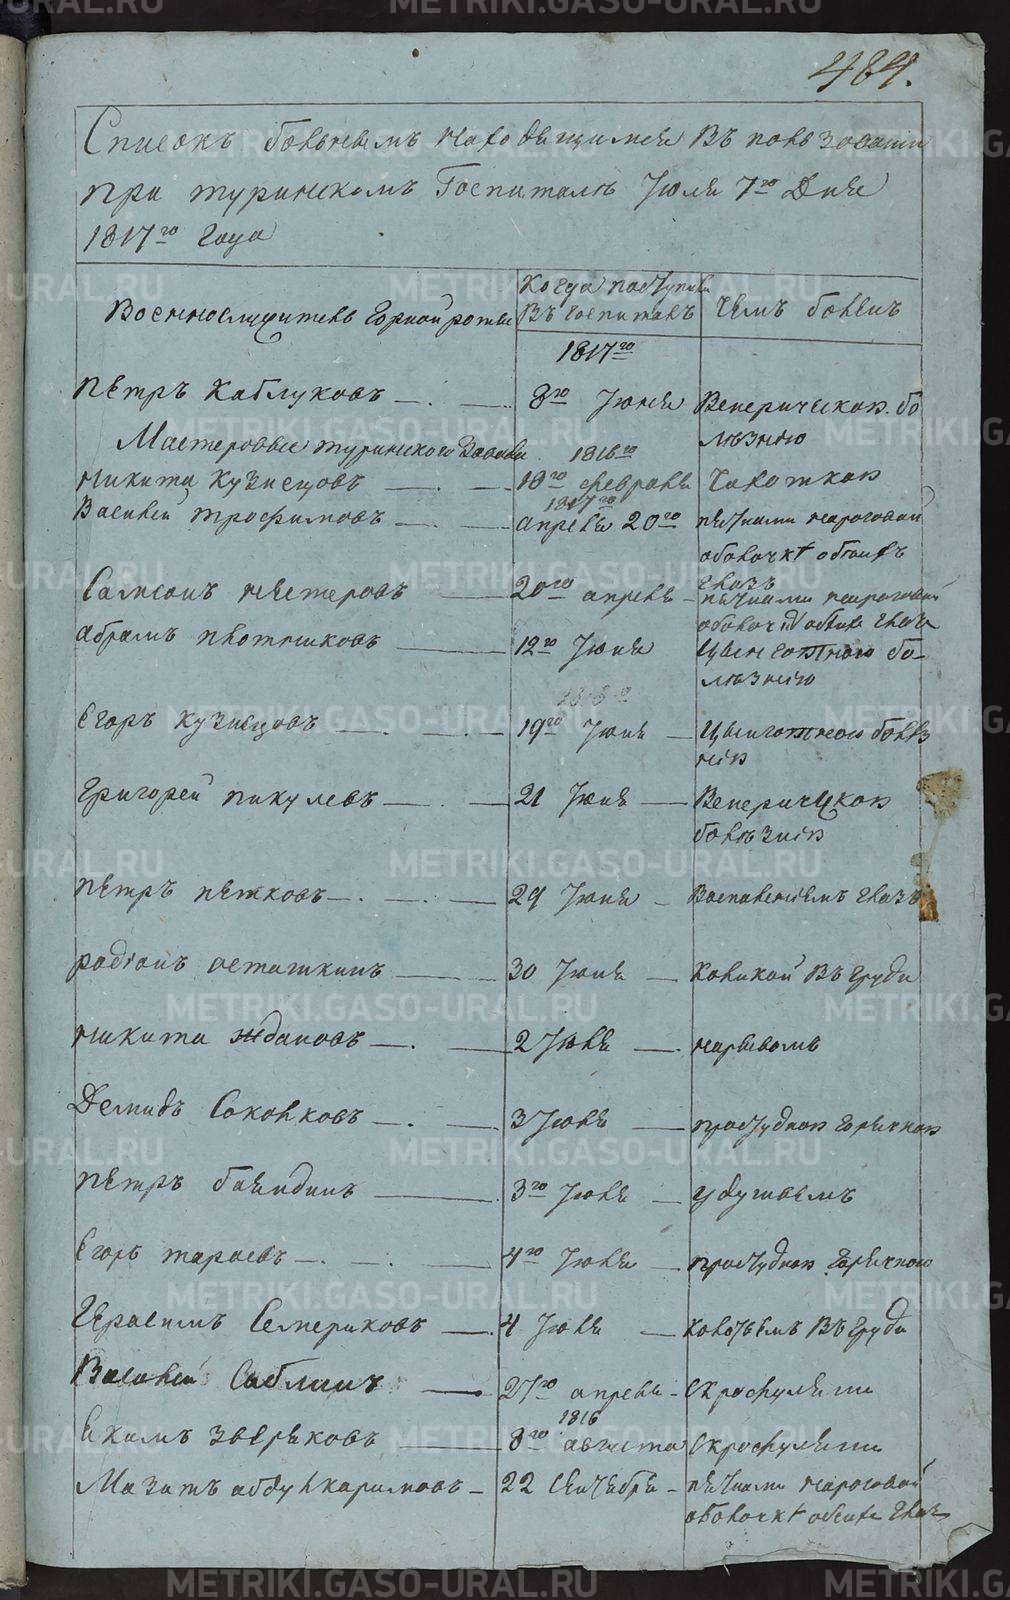 484.
Списокъ больнымъ находящимся въ пользовании
при туринскомъ Госпиталѣ Июля 7го Дня
1817го года
Военнослужители горной роты
Когда поступили
въ госпиталь
Чемъ боленъ
1817го
Петръ Каблуковъ 8го Июня Венерическою бо
лѣзнию
Мастеровые туринского Завода 1816го
Никита Кузнецовъ 18го февраля Чахоткою
1817го
Василей трофимовъ апреля 20го пятнами нароговой
оболочкѣ обоихъ
глазъ
Самсонъ нестеровъ 20го апреля пятнами нароговой
оболочки обоихъ глазъ
абрамъ плотниковъ 12го Июня Цынготною бо-
лѣзнию
Егоръ кузнецовъ 19го Июня Цынготною болѣз
нию
Григорей пикулевъ 21 Июня Венерическою
болѣзнию
петръ петковъ 29 Июня Воспалениемъ глазъ
родионъ осташкинъ 30 Июня Коликой въ груди
никита ждановъ 2 Июля нарывомъ
Демидъ Сокольковъ 3 Июля простудною горячкою
петръ баяндинъ 3го Июля удушьемъ
Егоръ тарасевъ 4го Июля простудною горячкою
Герасимъ Семериковъ 4 Июля колотьемъ въ груди
Василей Саблинъ 27го апреля Скрофулями
1816
Екимъ зверьковъ 8го августа Скрофулями
Мазитъ абдулкаримовъ 22 Сентября пятнами нароговой
оболочкѣ обоихъ глазъ
METRIKI.GASO-URAL.RU